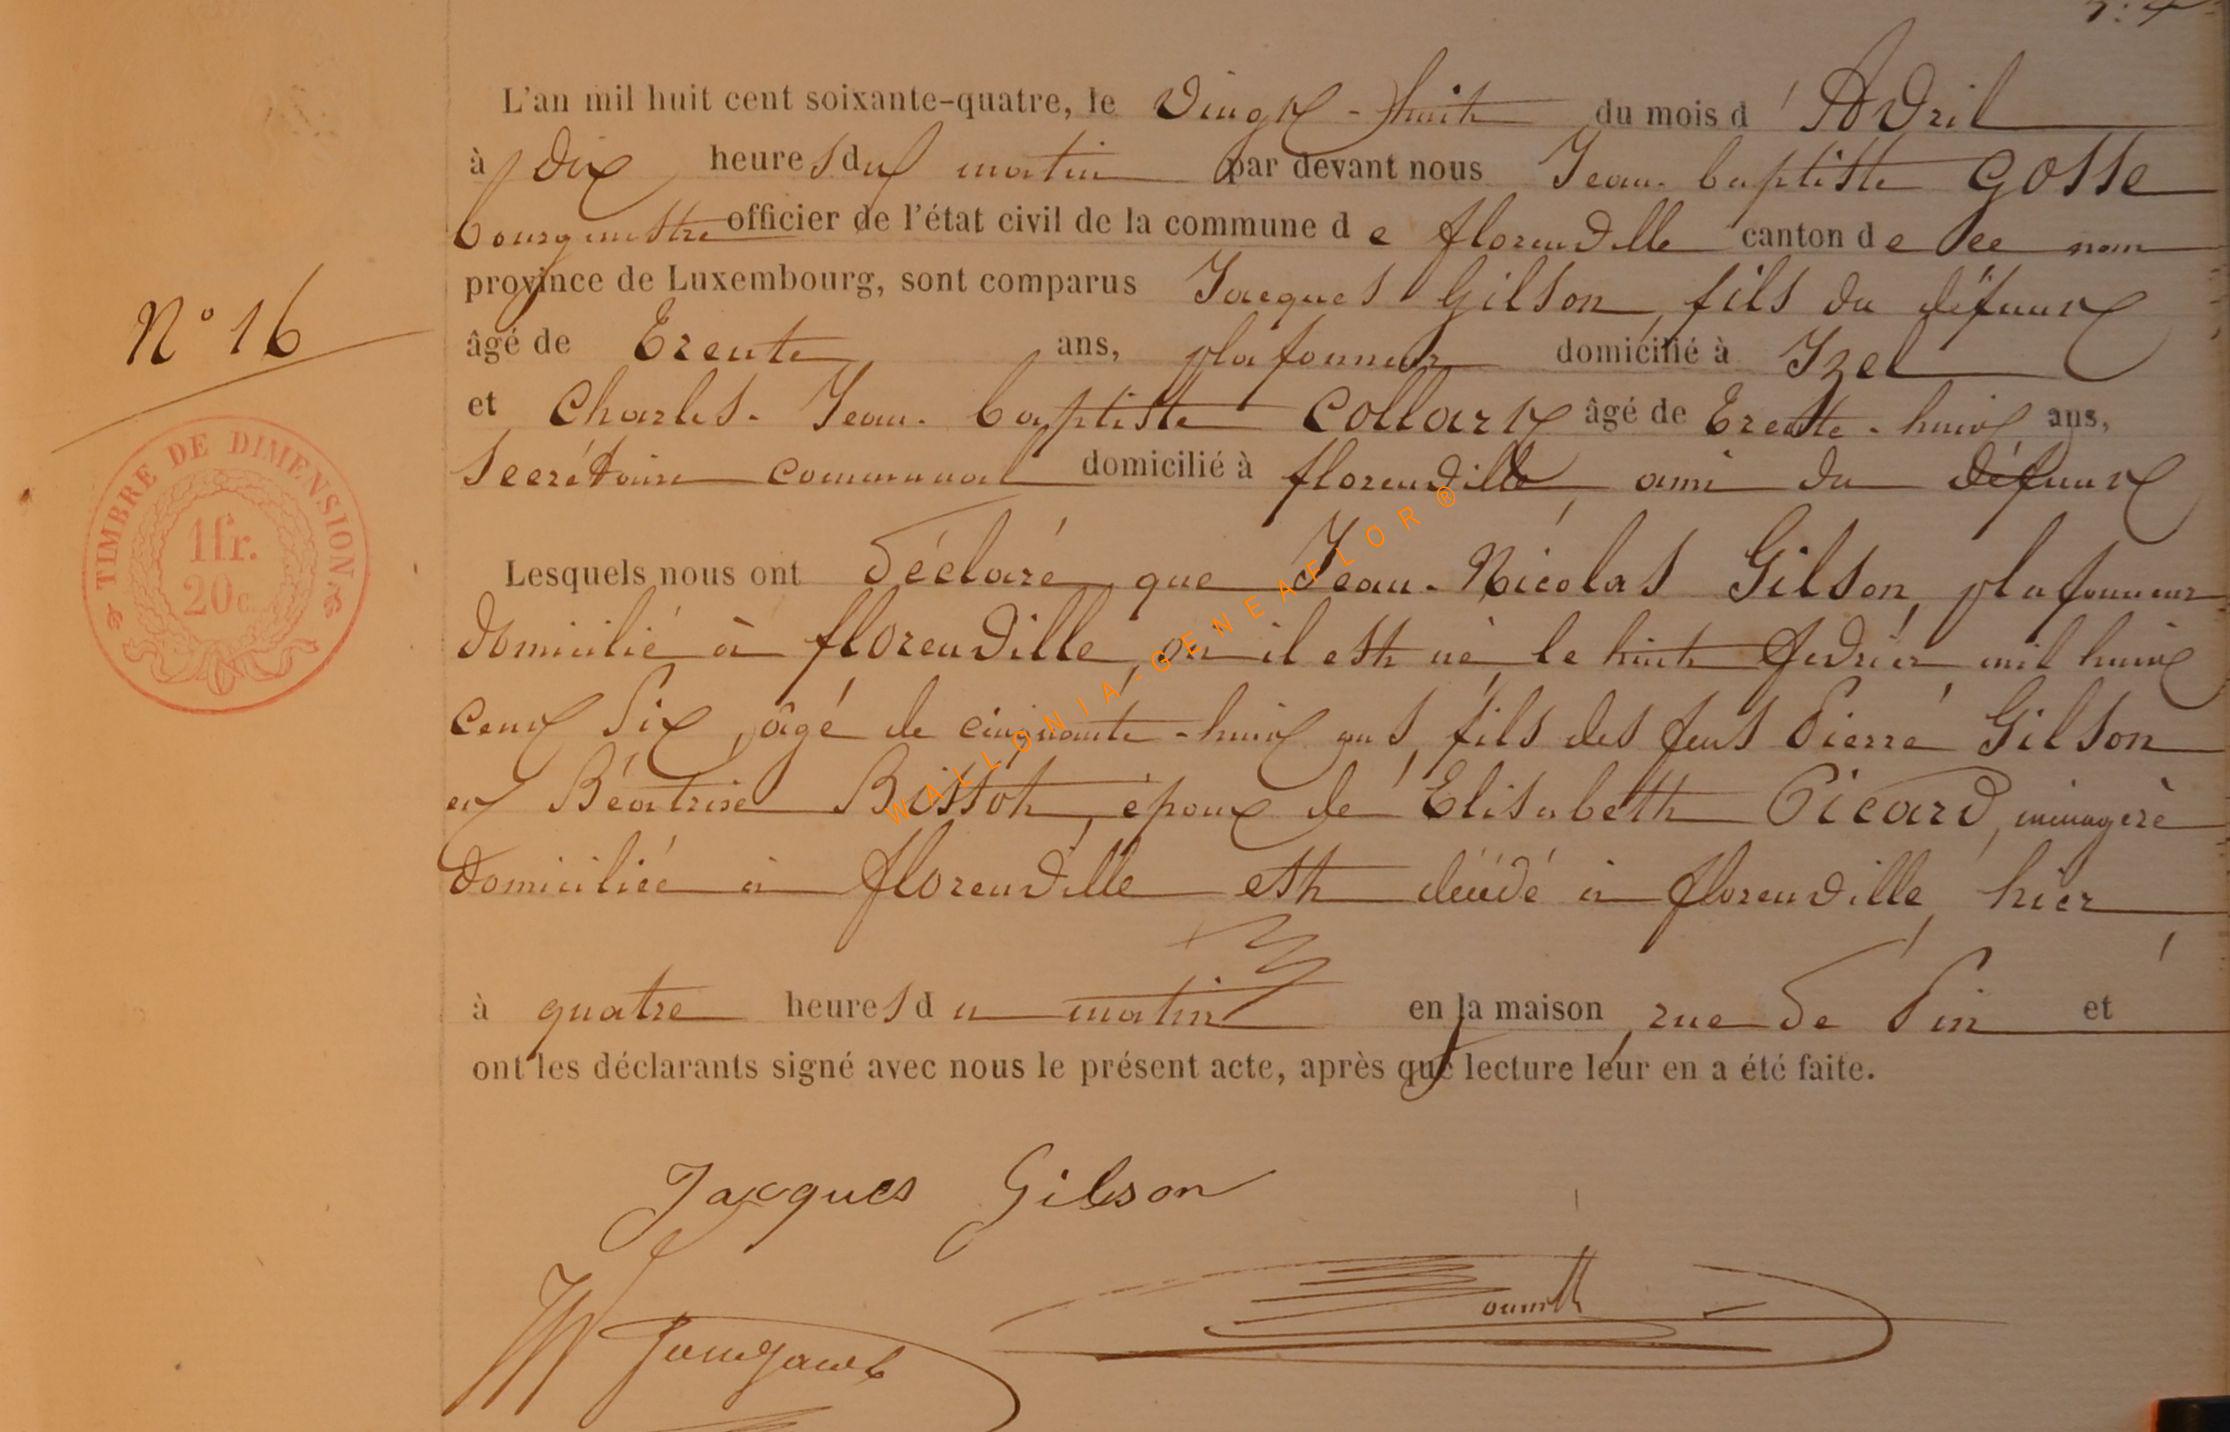 L'an mil huit cent soixante-quatre, le vingt-huit du mois d'Avril
à dix heures du matin par devant nous Jean-baptiste Gosse
bourgmestre officier de l'état civil de la commune de florenville canton de ce nom
province de Luxembourg, sont comparus Jacques Gilson, fils du défunt
âgé de Trente ans, plafonneur domicilié à Izel
N° 16
et Charles-Jean-baptiste Collart âgé de Trente-huit ans,
secrétaire communal domicilié à florenville, ami du défunt
TIMBRE DE DIMENSION
1fr.
20c
Lesquels nous ont déclaré que Jean-Nicolas Gilson, plafonneur
domicilié à florenville, où il est né, le huit février mil huit
cent six, âgé de cinquante-huit ans, fils des feus Pierre Gilson
et Béatrise Bissot, époux de Elisabeth Picard, ménagère
domiciliée à florenville est décédé à florenville, hier
à quatre heures du matin en la maison, rue de Pin et
ont les déclarants signé avec nous le présent acte, après que lecture leur en a été faite.
WALLONIA-GENEAFLOR®
Jacques Gilson